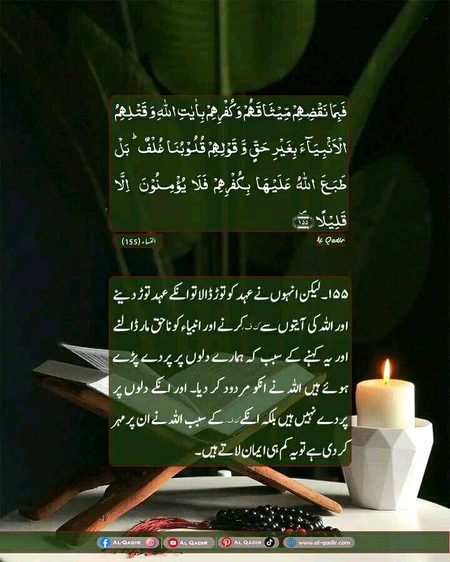 فَبِمَا نَقْضِهِمْ مِّيْثَاقَهُمْ وَكُفْرِهِمْ بِاٰيٰتِ اللّٰهِ وَقَتْلِهِمُ
الْاَنْۢبِيَآءَ بِغَيْرِ حَقٍّ وَّقَوْلِهِمْ قُلُوْبُنَا غُلْفٌ ؕ بَلْ
طَبَعَ اللّٰهُ عَلَيْهَا بِكُفْرِهِمْ فَلَا يُؤْمِنُوْنَ اِلَّا
قَلِيْلًا ۝۱۵۵
النساء (155) Al Qadir
۱۵۵۔ لیکن انہوں نے عہد کو توڑ ڈالا تو انکے عہد توڑ دینے
اور اللہ کی آیتوں سے کفر کرنے اور انبیاء کو ناحق مار ڈالنے
اور یہ کہنے کے سبب کہ ہمارے دلوں پر پردے پڑے
ہوئے ہیں اللہ نے انکو مردود کر دیا۔ اور انکے دلوں پر
پردے نہیں ہیں بلکہ انکے کفر کے سبب اللہ نے ان پر مہر
کر دی ہے تو یہ کم ہی ایمان لاتے ہیں۔
AL-QADIR AL QADIR AL QADIR www.al-qadir.com